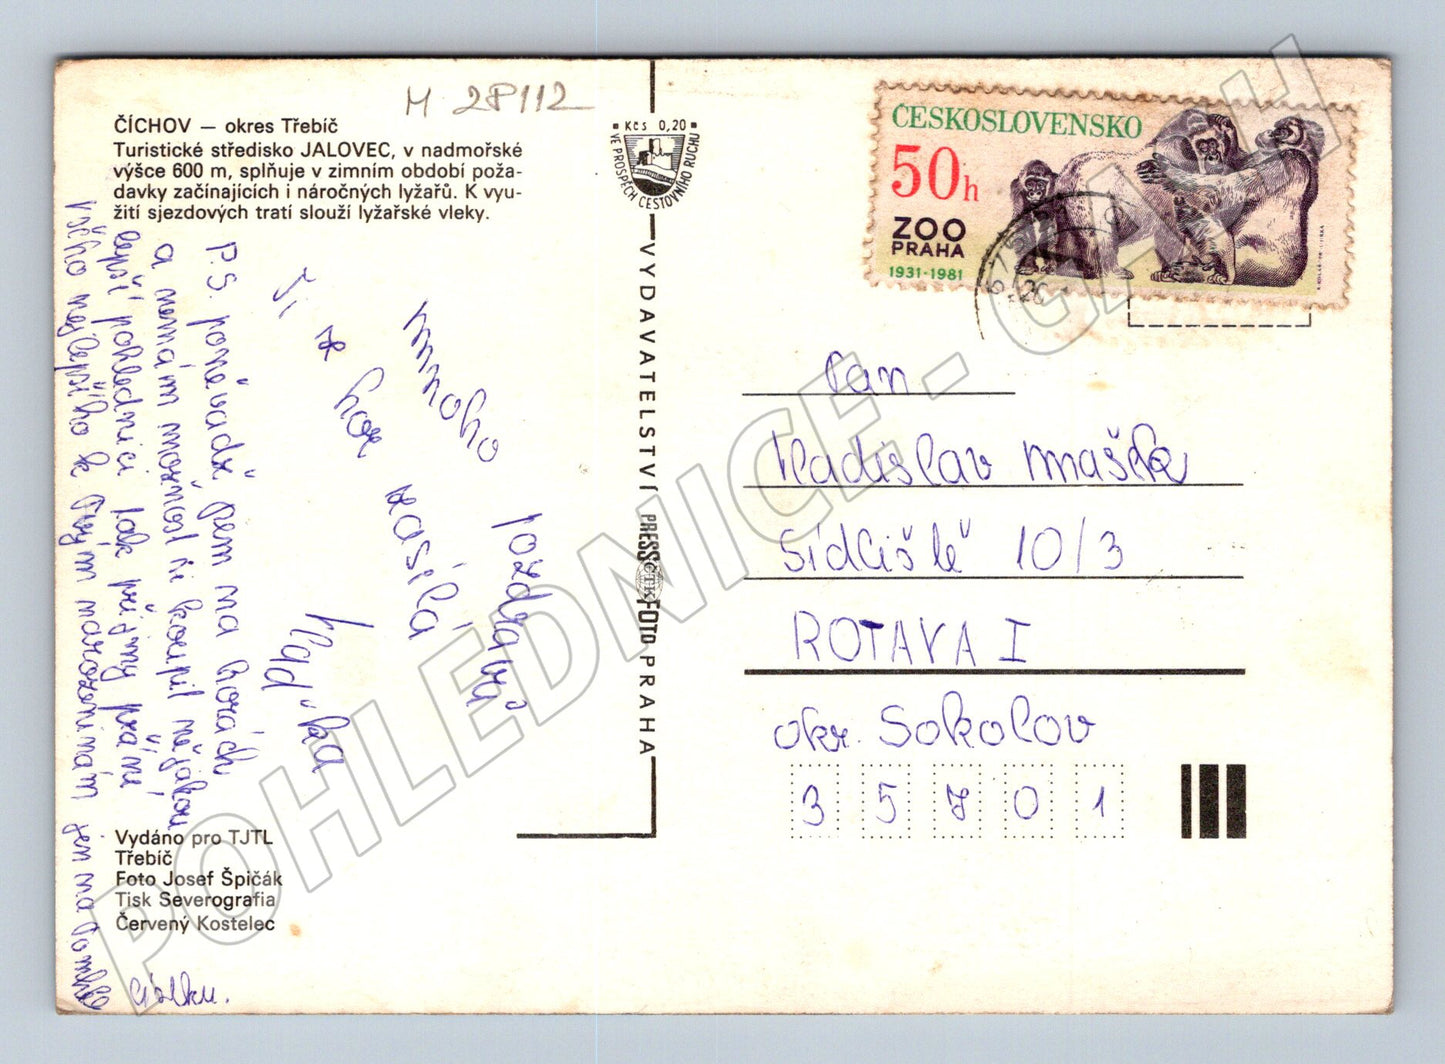 M 28112
ČÍCHOV — okres Třebíč
Turistické středisko JALOVEC, v nadmořské
výšce 600 m, splňuje v zimním období poža-
davky začínajících i náročných lyžařů. K vyu-
žití sjezdových tratí slouží lyžařské vleky.
Kčs 0,20
VE PROSPĚCH CESTOVNÍHO RUCHU
ČESKOSLOVENSKO
50h
ZOO
PRAHA
1931-1981
mnoho pozdravů
Ti z hor zasílá
Vlaďka
P.S. poněvadž sem na horách
a nemám možnost ti koupit nějakou
lepší pohlednici tak přijmy přání
Všeho nejlepšího k Tvým narozeninám jen na tomhle
lístku.
VYDAVATELSTVÍ PRESSFOTO PRAHA
ČTK
Pan
Vladislav Mašek
Sídliště 10/3
ROTAVA I
okr. Sokolov
35701
Vydáno pro TJTL
Třebíč
Foto Josef Špičák
Tisk Severografia
Červený Kostelec
POHLEDNICE - CZ